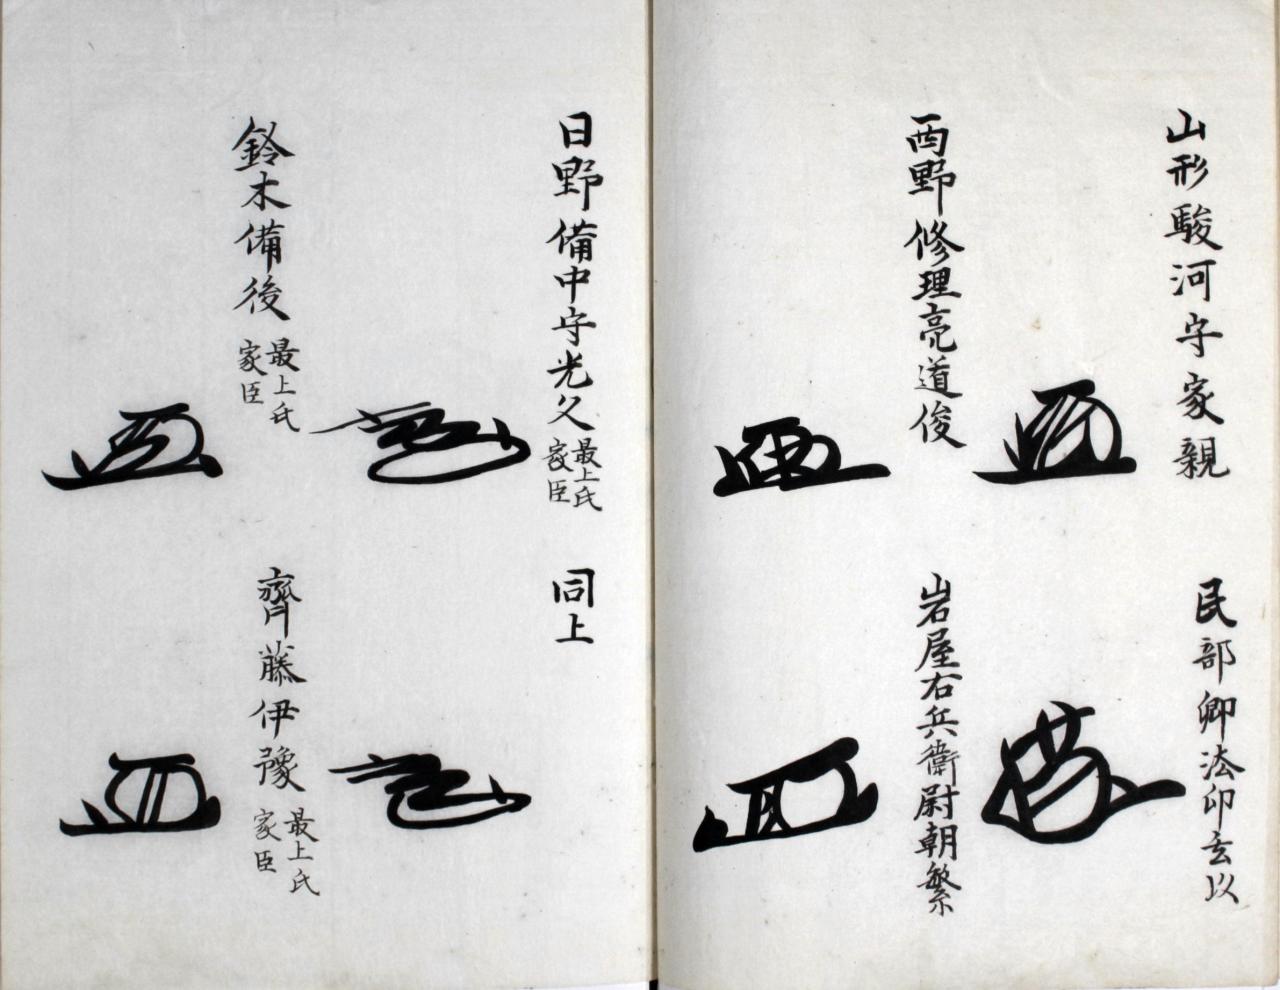 山形駿河守家親
民部卿法印玄以
西野修理亮道俊
岩屋右兵衛尉朝繁
日野備中守光久
最上氏
家臣
同上
鈴木備後
最上氏
家臣
齊藤伊豫
最上氏
家臣